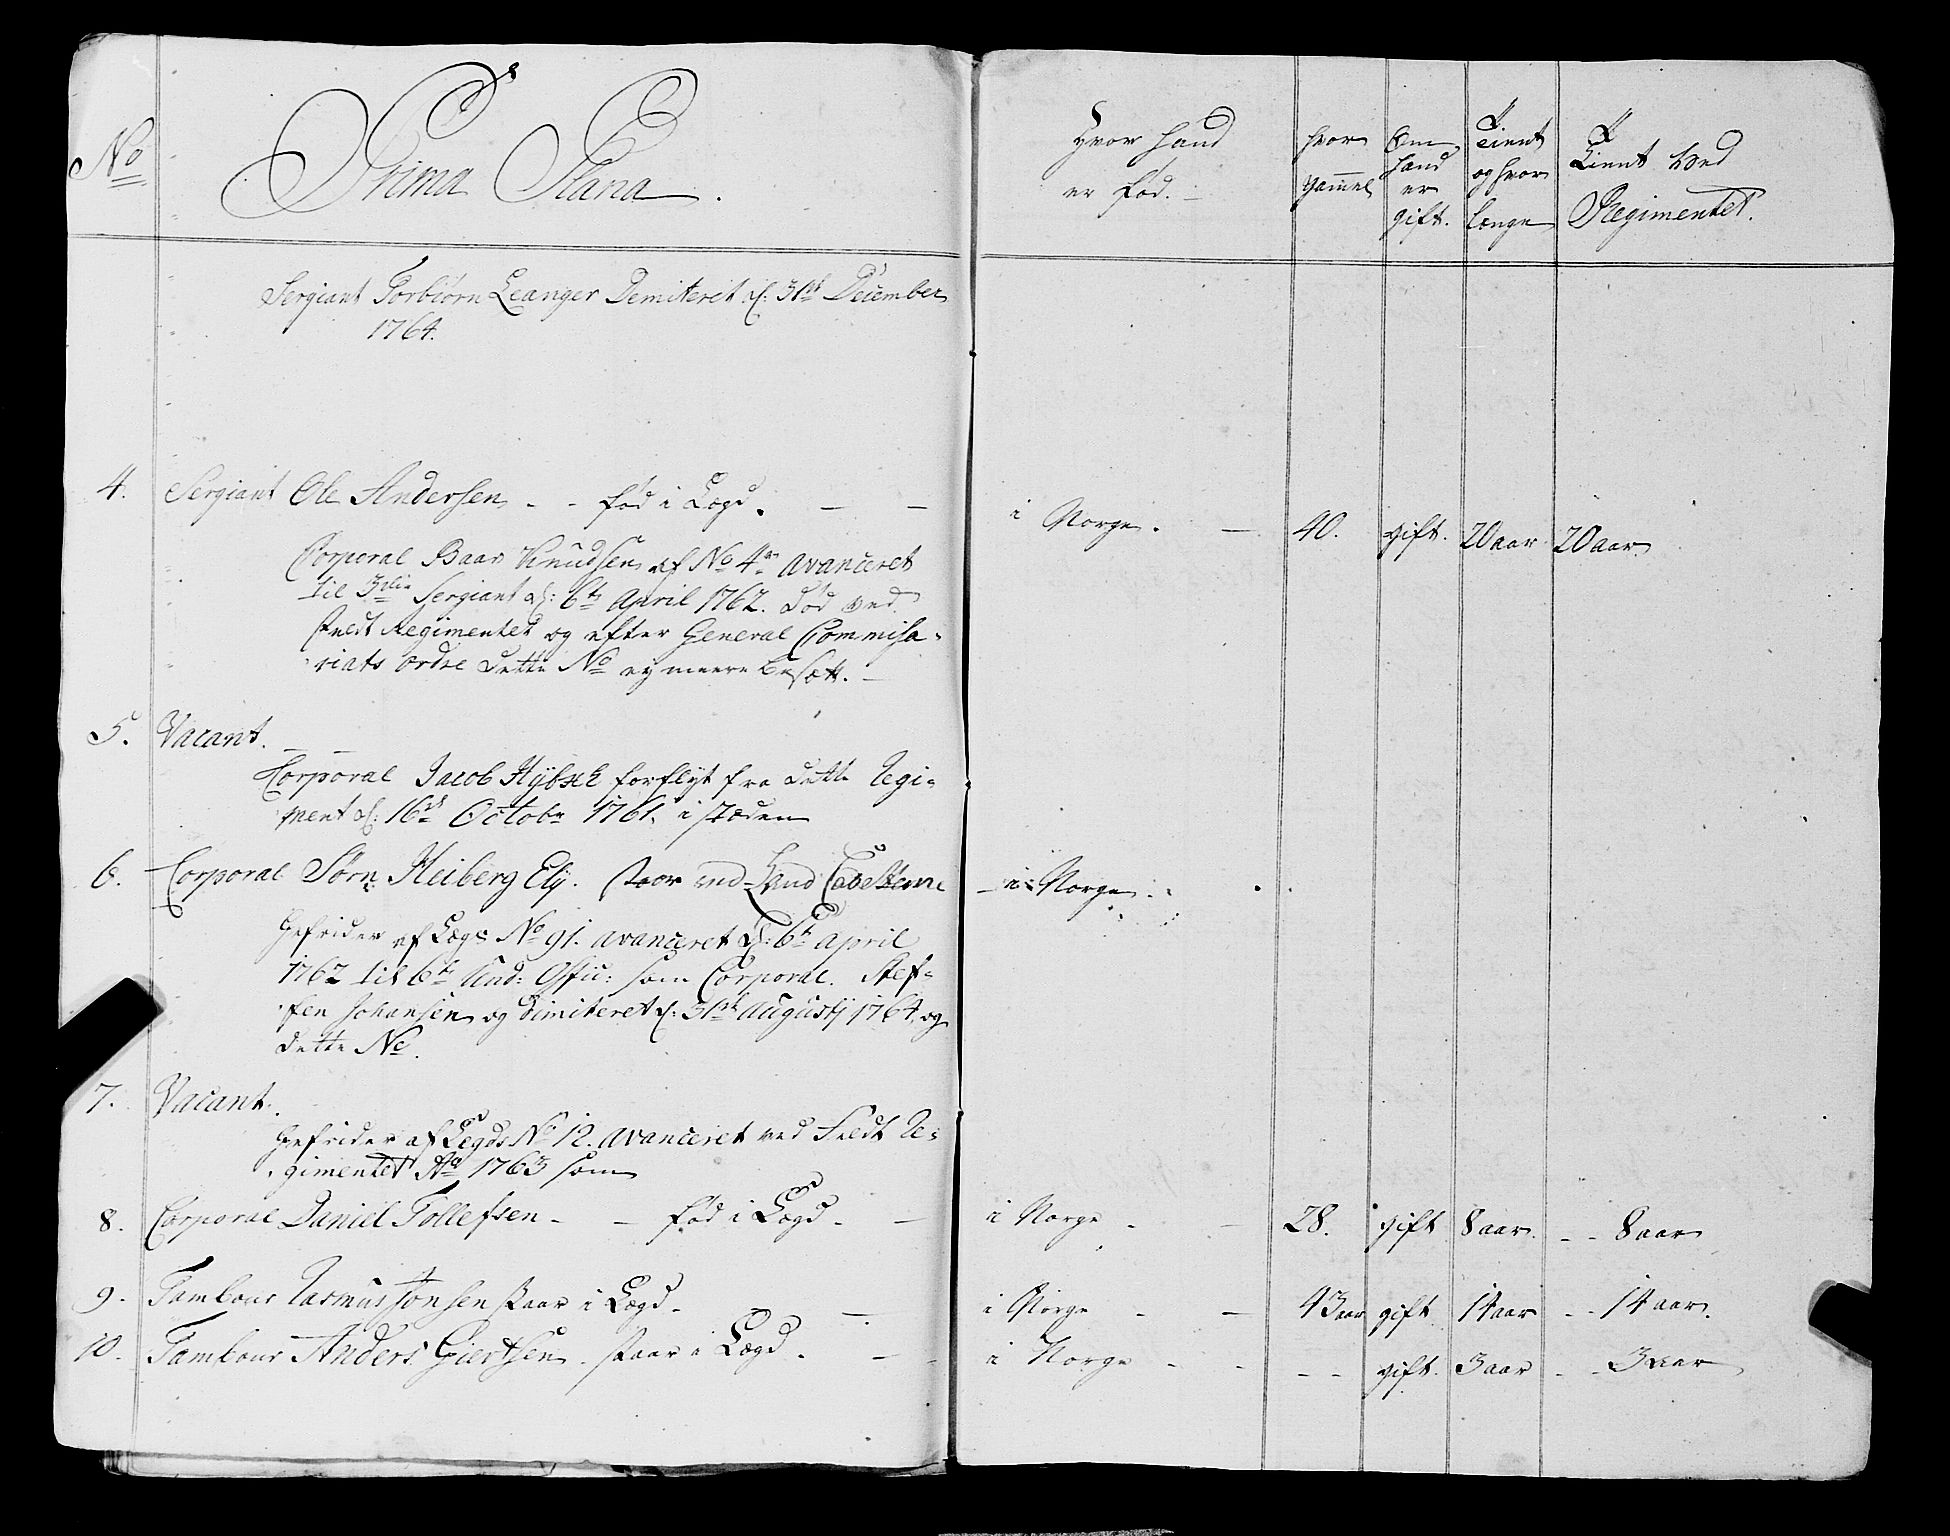 No
Prima Plana.
Hvor hand
er fød.
hvor
gammel
Om
hand
er
gift.
Tient
og hvor
længe
Tient ved
Regimentet.
Sergiant Torbiørn Leanger Demiteret d: 31te December
1764.
4. Sergiant Ole Andersen - - fød i Lægd. — — i Norge. — 40. gift. 20 aar 20 aar
Corporal Baar Knudsen af No 4 avanceret
til 3die Sergiant d: 6te April 1762. Død ved
Feldt Regimentet og efter General Commisa-
riats ordre dette No ey meere besætt.
5. Vacant.
Corporal Jacob Hybsch forflyt fra dette Regi-
ment d: 16de Octobr 1761. i stæden
6. Corporal Sørn Heiberg Ely. staar ved Land - i Norge.
Gefrider af Lægd No 91. avanceret d: 6te April
1762 til 6te Und: Offic: som Corporal. Stef-
fen Johansen og Dimiteret d: 31te Augustj 1764, og
dette No.
7. Vacant.
Gefrider af Legds No 12. avanceret ved Feldt Re-
gimentet Ao 1763 som
8. Corporal Daniel Tollefsen - — fød i Lægd - — i Norge - — 28. gift 8 aar. - - 8 aar
9. Tambour Rasmus Jonsen staar i Lægd - — i Norge - — 43 aar gift 14 aar - - 14 aar.
10. Tambour Anders Giertsen. staar i Lægd. — - i Norge - - - - gift. 3 aar - - 3 aar